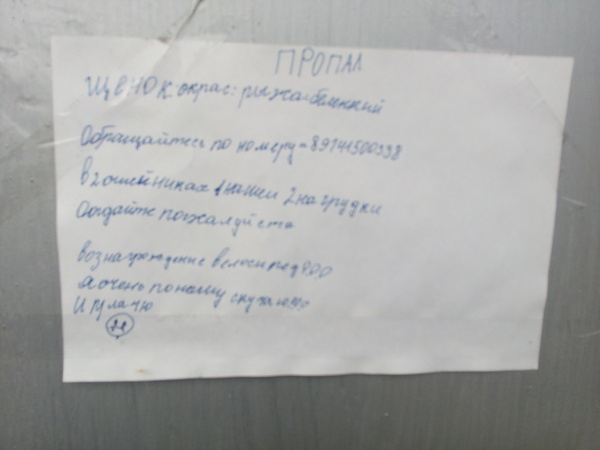 ПРОПАЛ
ЩЕНОК. окрас: рыжа-беленкий
Обращайтесь по номеру = 89141500338
в 2 ошейниках 2 на грудки
Отдайте пожалуйста
вознаграждение велосипед
я очень по нему скучаю
И плачю